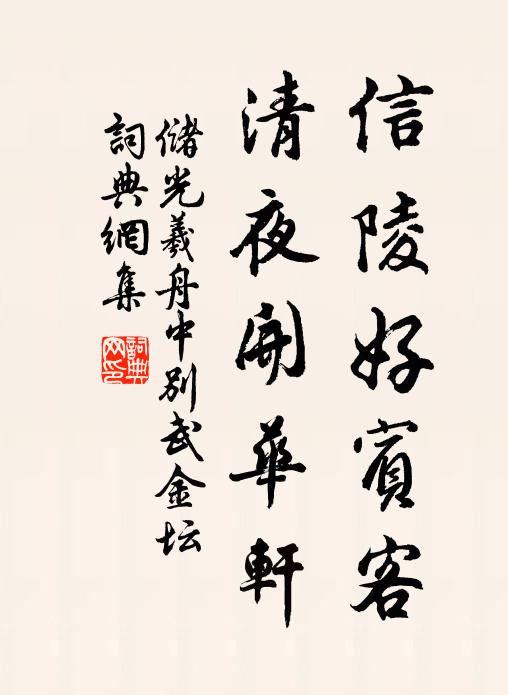 信陵好賓客
清夜開華軒
儲光羲舟中別武金坛
詞典網集
詞典網印